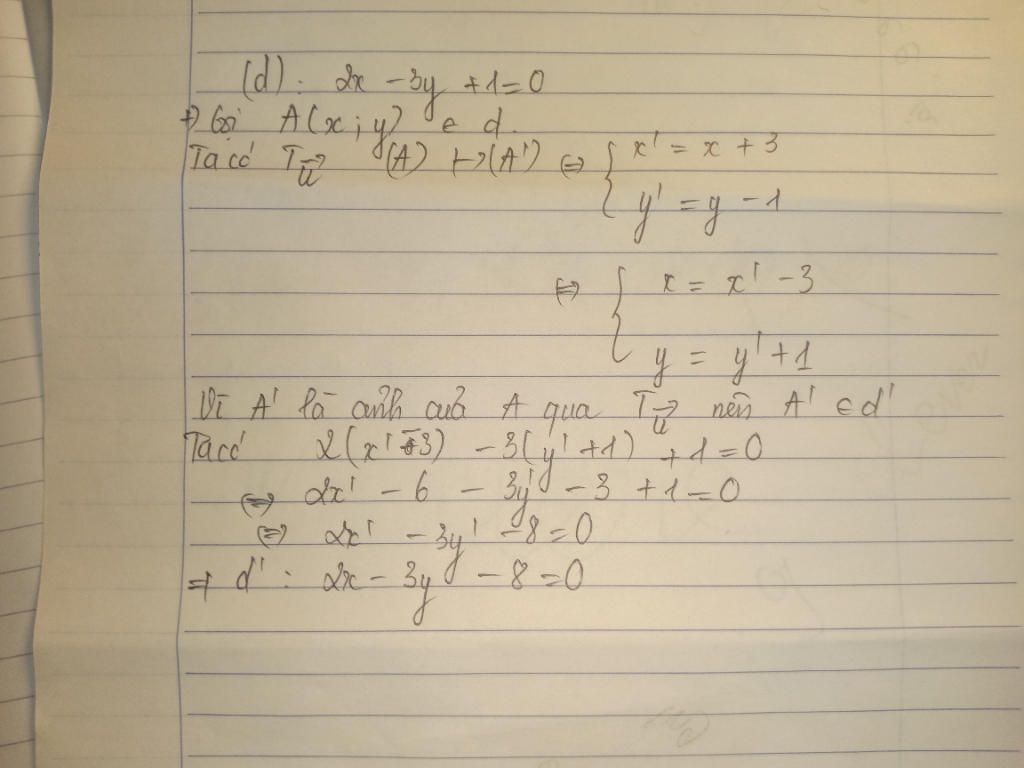 (d): 2x - 3y + 1 = 0
+) Gọi A(x; y) ∈ d.
Ta có T_{\vec{u}} (A) ↦ (A') ⇔ { x' = x + 3
y' = y - 1
⇔ { x = x' - 3
y = y' + 1
Vì A' là ảnh của A qua T_{\vec{u}} nên A' ∈ d'
Ta có 2(x' - 3) - 3(y' + 1) + 1 = 0
⇔ 2x' - 6 - 3y' - 3 + 1 = 0
⇔ 2x' - 3y' - 8 = 0
⇒ d' : 2x - 3y - 8 = 0